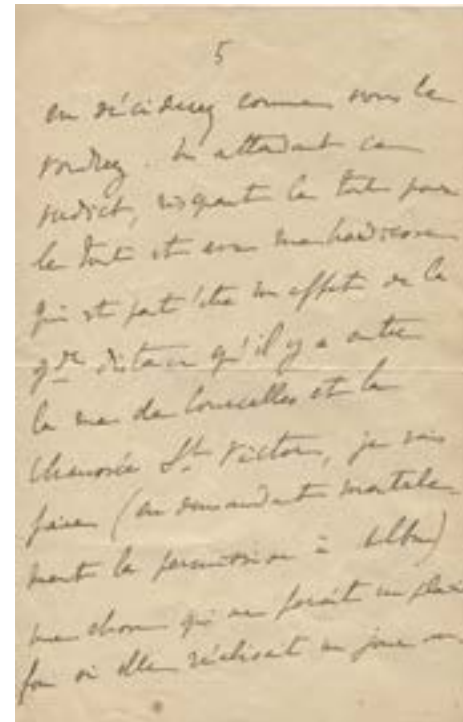 5
en déciderez comme vous le
voudrez. En attendant ce
verdict, risquant le tout pour
le tout et avec une hardiesse
qui est peut être un effet de la
gde distance qu'il y a entre
la rue de Courcelles et la
Chaussée St Victor, je vais
faire (en demandant mentale-
ment la permission à
une chose qui me ferait un plaisir
fou si elle réalisait un jour